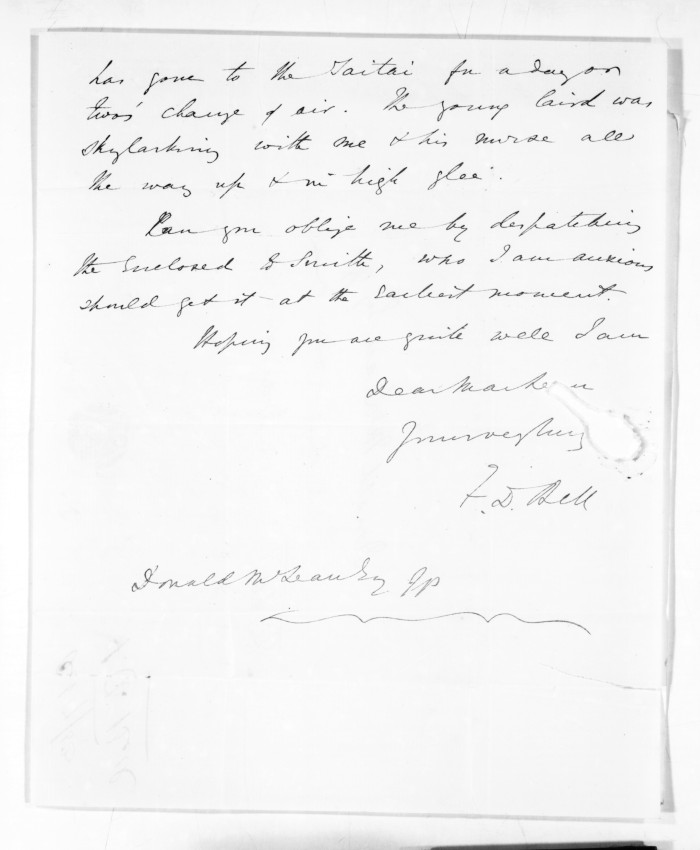 has gone to the Taitai for a day or
two's change of air. The young laird was
skylarking with me & his nurse all
the way up & in high glee.
Can you oblige me by despatching
the Enclosed to Smith, who I am anxious
should get it at the Earliest moment.
Hoping you are quite well I am
Dear MacLean
Yours very truly
F. D. Bell
Donald McLean Esq JP